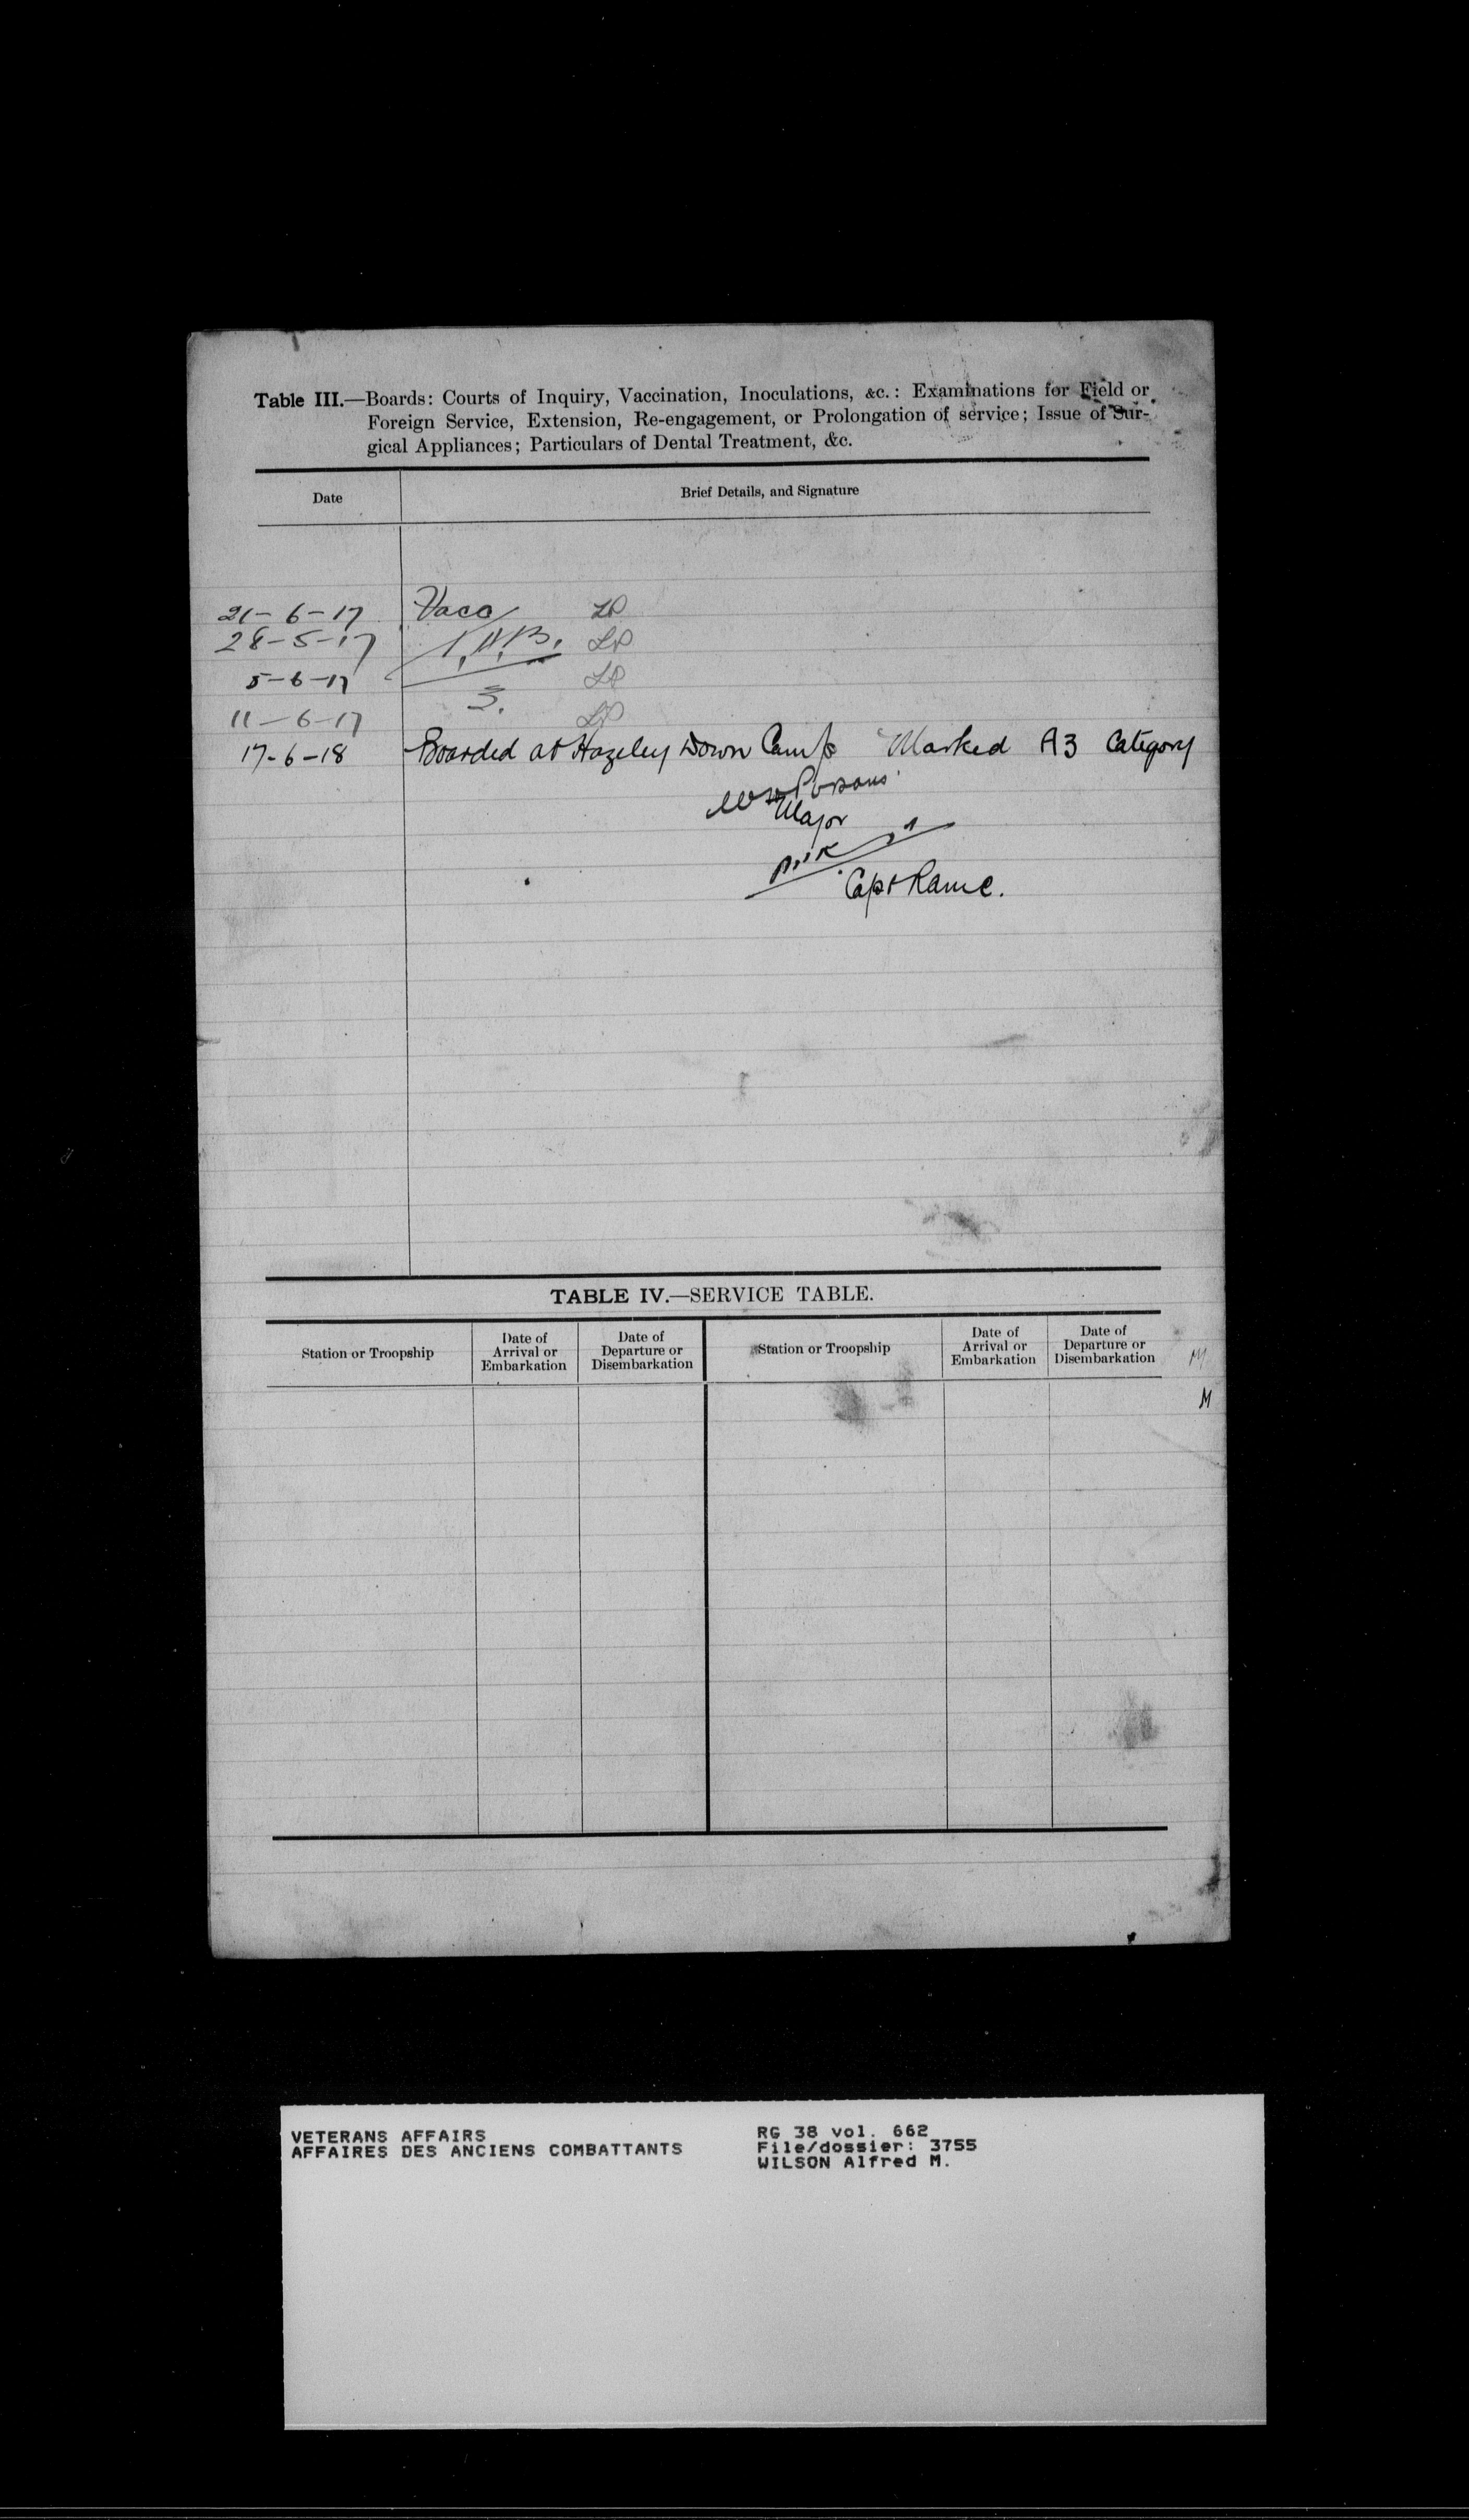 Table III.—Boards: Courts of Inquiry, Vaccination, Inoculations, &c.: Examinations for Field or
Foreign Service, Extension, Re-engagement, or Prolongation of service; Issue of Sur-
gical Appliances; Particulars of Dental Treatment, &c.
Date Brief Details, and Signature
21-6-17 Vacc
28-5-17 T.A.B.
5-6-17
11-6-17 3.
17-6-18 Boarded at Hazeley Down Camp Marked A3 Category
Parsons
Major
Capt Ramc.
TABLE IV.—SERVICE TABLE.
Station or Troopship Date of Arrival or Embarkation Date of Departure or Disembarkation Station or Troopship Date of Arrival or Embarkation Date of Departure or Disembarkation
M
M
VETERANS AFFAIRS RG 38 vol. 662
AFFAIRES DES ANCIENS COMBATTANTS File/dossier: 3755
WILSON Alfred M.